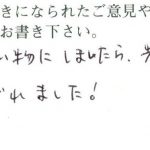 きになられたご意見や
お書き下さい。
い物にしましたら、先
れました!